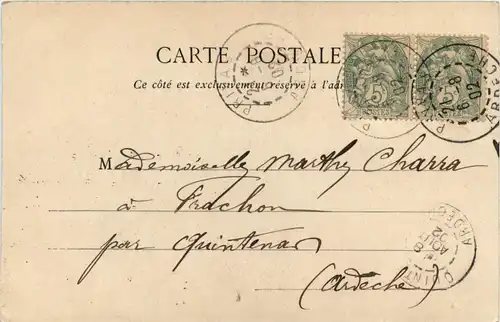 CARTE POSTALE
Ce côté est exclusivement réservé à l'adr
PRIVAS
ARDECHE
5
5
Mademoiselle Marthe Charra
à Frachon
par Quintenas
(Ardèche)
QUINT
ARDECHE
8
AOUT
02